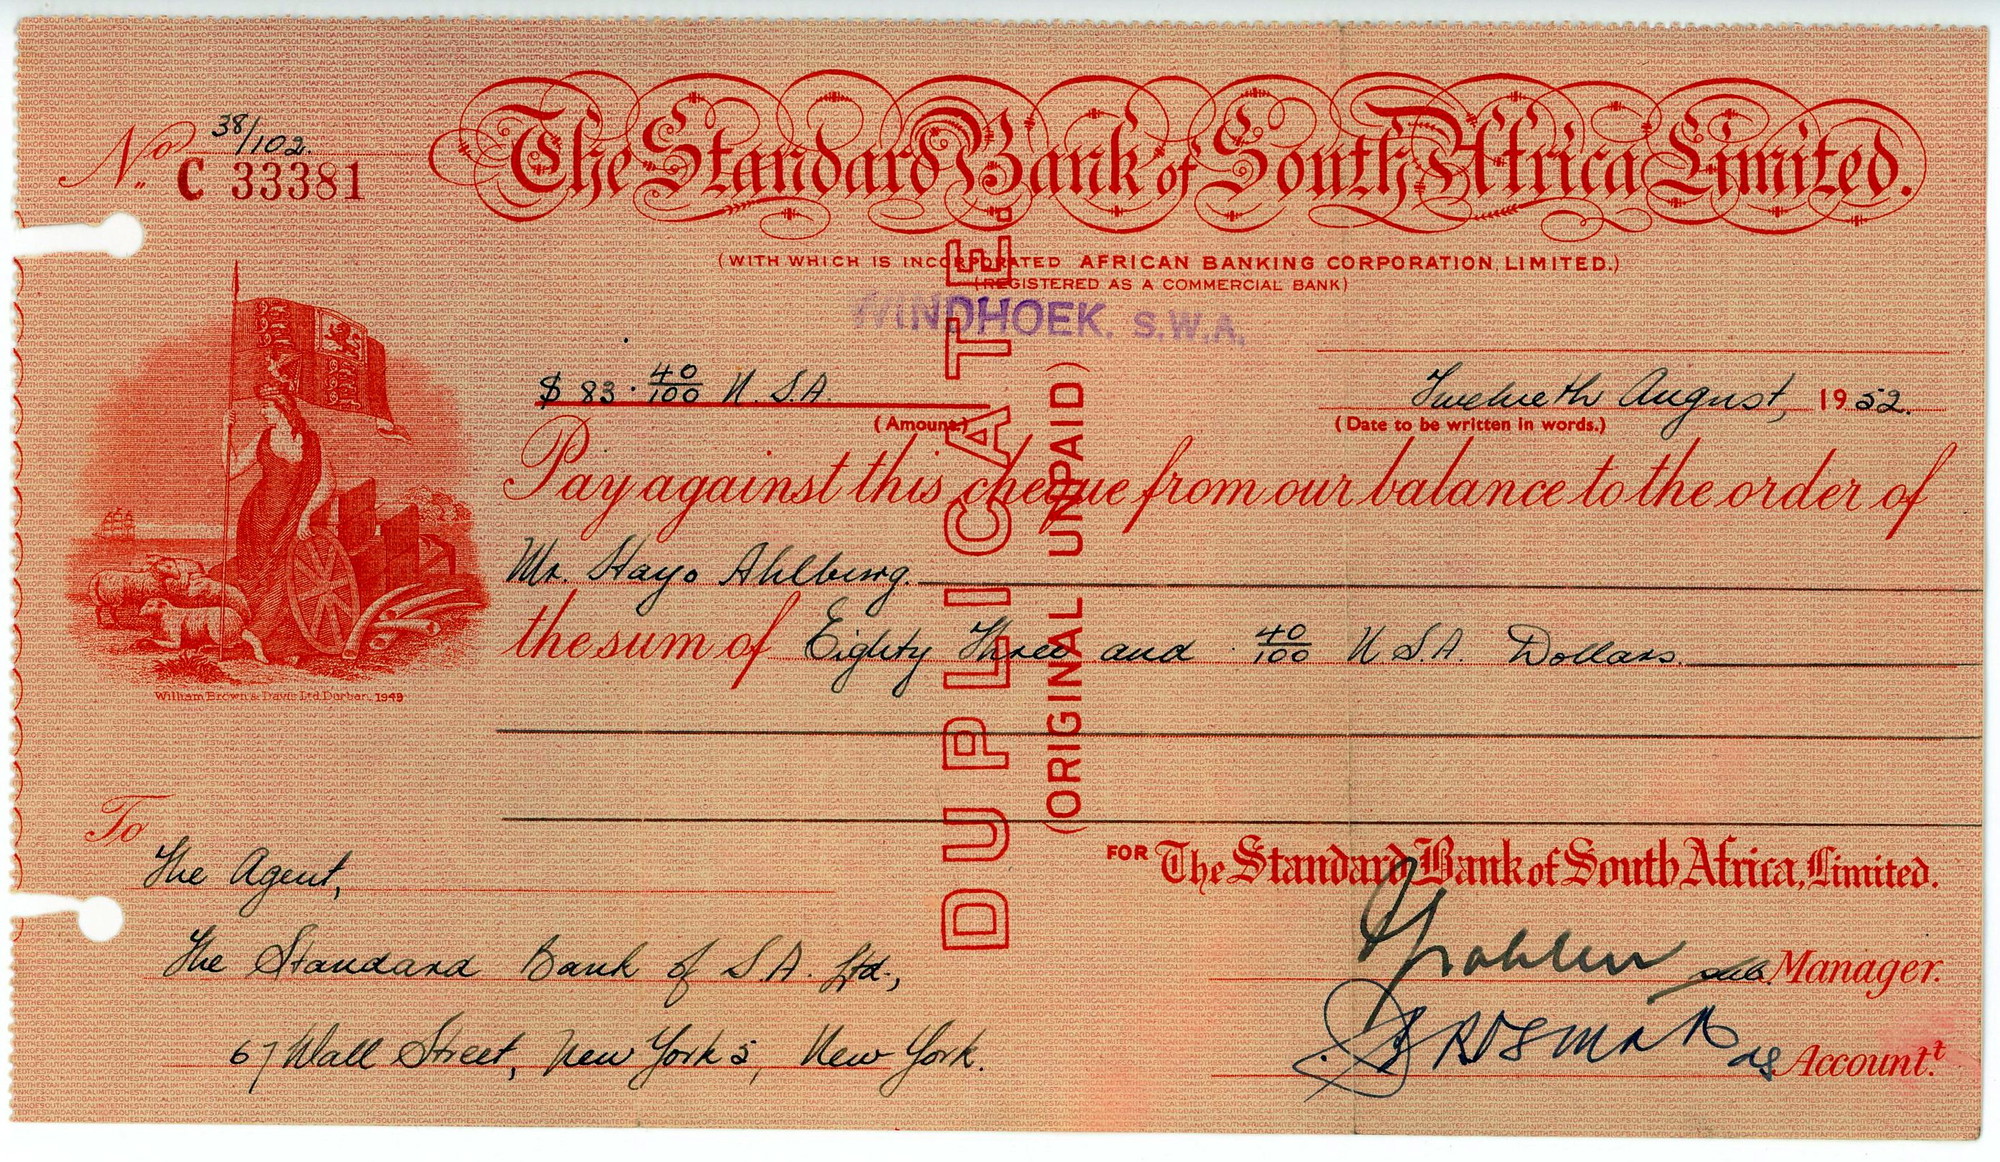 38/102.
No. C 33381
The Standard Bank of South Africa Limited.
(WITH WHICH IS INCORPORATED AFRICAN BANKING CORPORATION, LIMITED.)
(REGISTERED AS A COMMERCIAL BANK)
WINDHOEK. S.W.A.
$ 83. 40/100 U.S.A. Twelveth August, 1952.
(Amount.) (Date to be written in words.)
Pay against this cheque from our balance to the order of
Mr. Hayo Ahlburg
the sum of Eighty Three and 40/100 U S.A. Dollars.
William Brown & Davis Ltd. Durban, 1949
DUPLICATE.
(ORIGINAL UNPAID)
To
The Agent,
The Standard Bank of S.A. Ltd.,
67 Wall Street, New York 5, New York.
FOR The Standard Bank of South Africa, Limited.
Manager.
Account.t